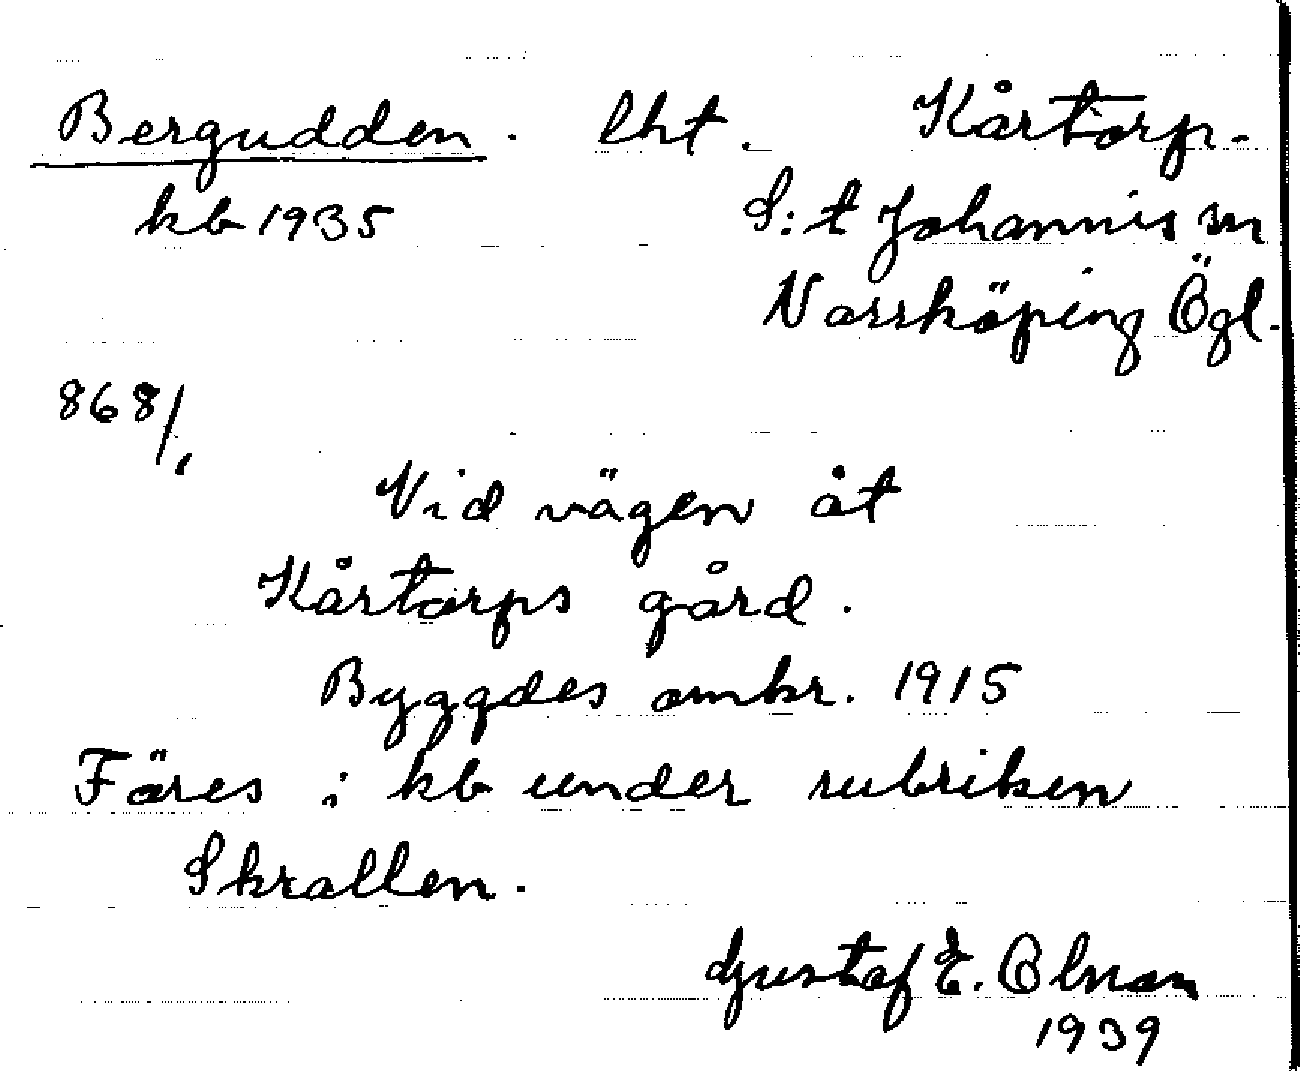 Bergudden. lht. Kårtorp.
kb 1935 S:t Johannis sn
Norrköping Ögl.
868/1
Vid vägen åt
Kårtorps gård.
Byggdes omkr. 1915
Föres i kb under rubriken
Skrallen.
Gustaf E.
1939